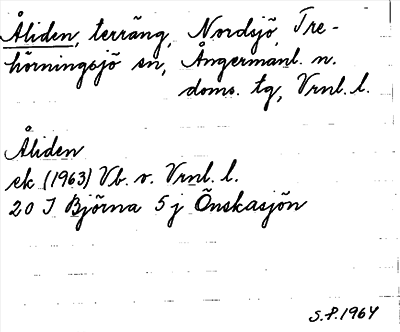 Åliden, terräng, Nordsjö, Tre-
hörningsjö sn, Ångermanl. n.
doms. tg, Vrnl. l.
Åliden
ek (1963) Vb. v. Vrnl. l.
20 I Björna 5 j Önskasjön
S.F. 1964